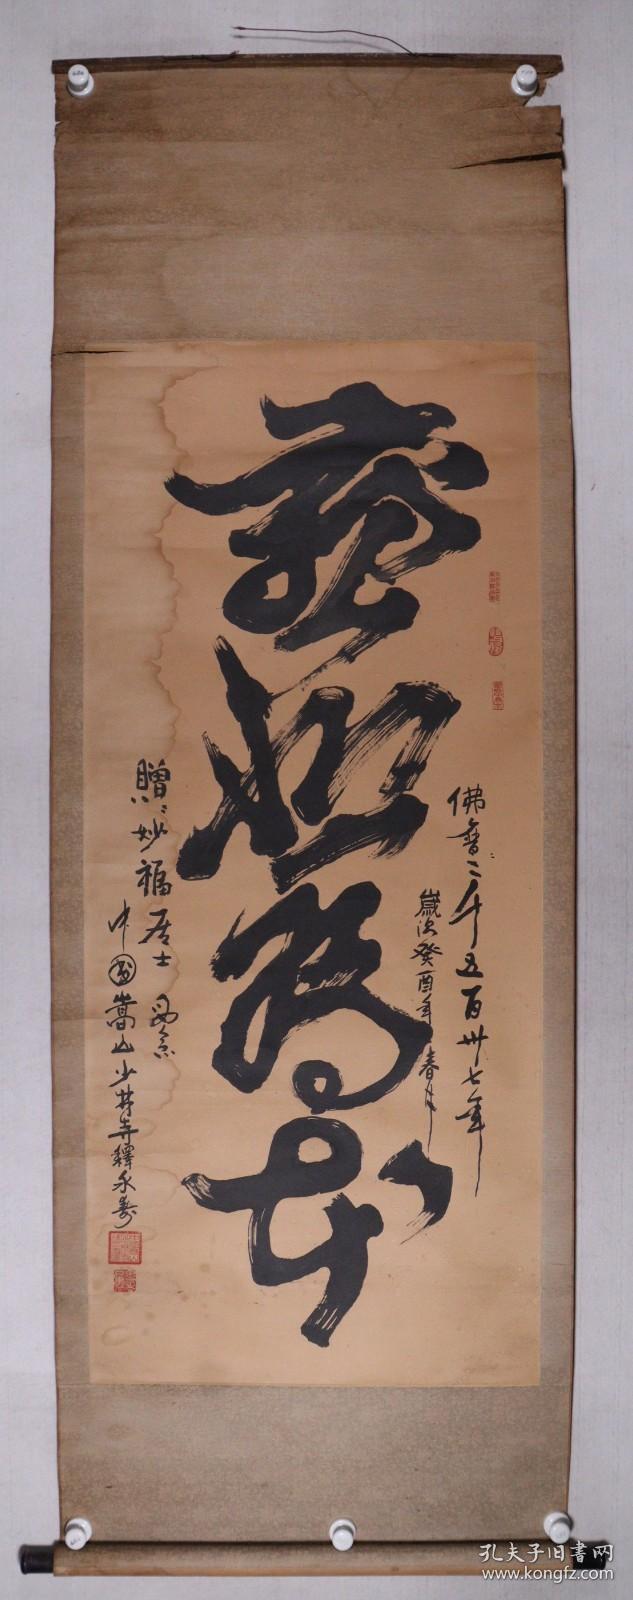 佛曆二千五百卅七年
歲次癸酉年春月
慈悲為本
贈妙福居士 留念
中國嵩山少林寺釋永壽
孔夫子旧書网
www.kongfz.com